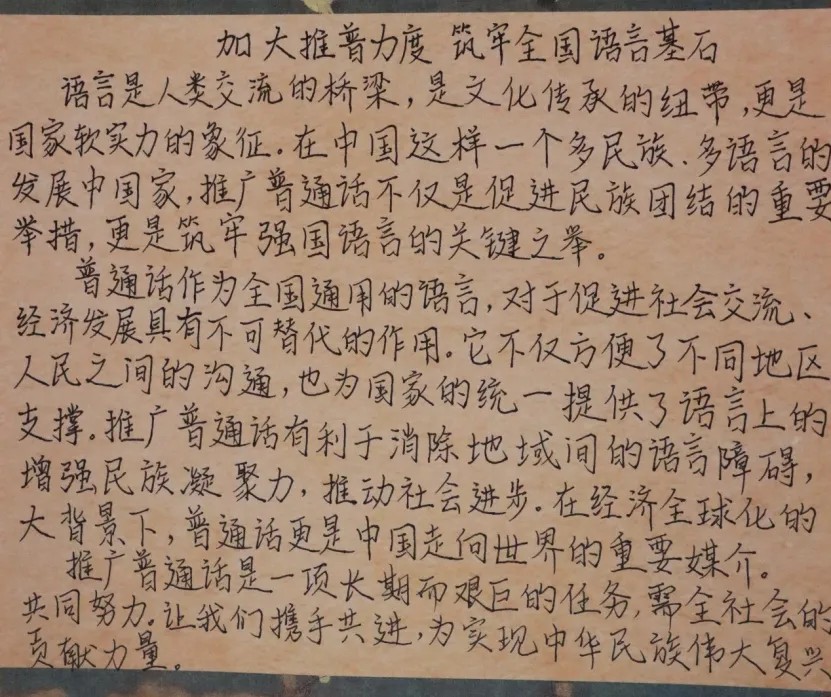 加大推普力度 筑牢全国语言基石
语言是人类交流的桥梁，是文化传承的纽带，更是
国家软实力的象征。在中国这样一个多民族、多语言的
发展中国家，推广普通话不仅是促进民族团结的重要
举措，更是筑牢强国语言的关键之举。
普通话作为全国通用的语言，对于促进社会交流、
经济发展具有不可替代的作用。它不仅方便了不同地区
人民之间的沟通，也为国家的统一提供了语言上的
支撑。推广普通话有利于消除地域间的语言障碍，
增强民族凝聚力，推动社会进步。在经济全球化的
大背景下，普通话更是中国走向世界的重要媒介。
推广普通话是一项长期而艰巨的任务，需全社会的
共同努力。让我们携手共进，为实现中华民族伟大复兴
贡献力量。